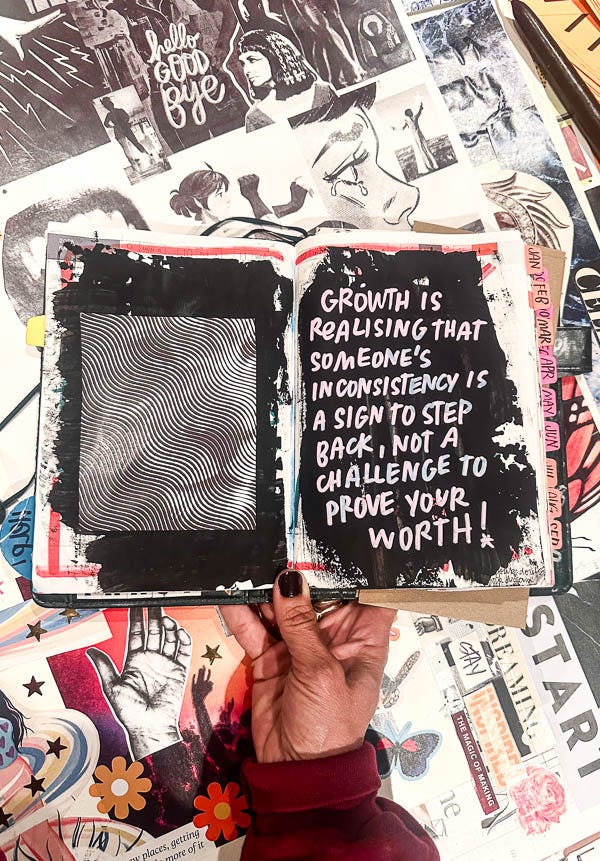 hello
GOOD
Bye
GROWTH IS
REALISING THAT
SOMEONE'S
INCONSISTENCY IS
A SIGN TO STEP
BACK, NOT A
CHALLENGE TO
PROVE YOUR
WORTH!
JAN
FEB
MAR
APR
MAY
JUN
JUL
AUG
SEP
DREAMING
STAR
GAY
INSPIRE
THE MAGIC OF MAKING
new places, getting
more of it